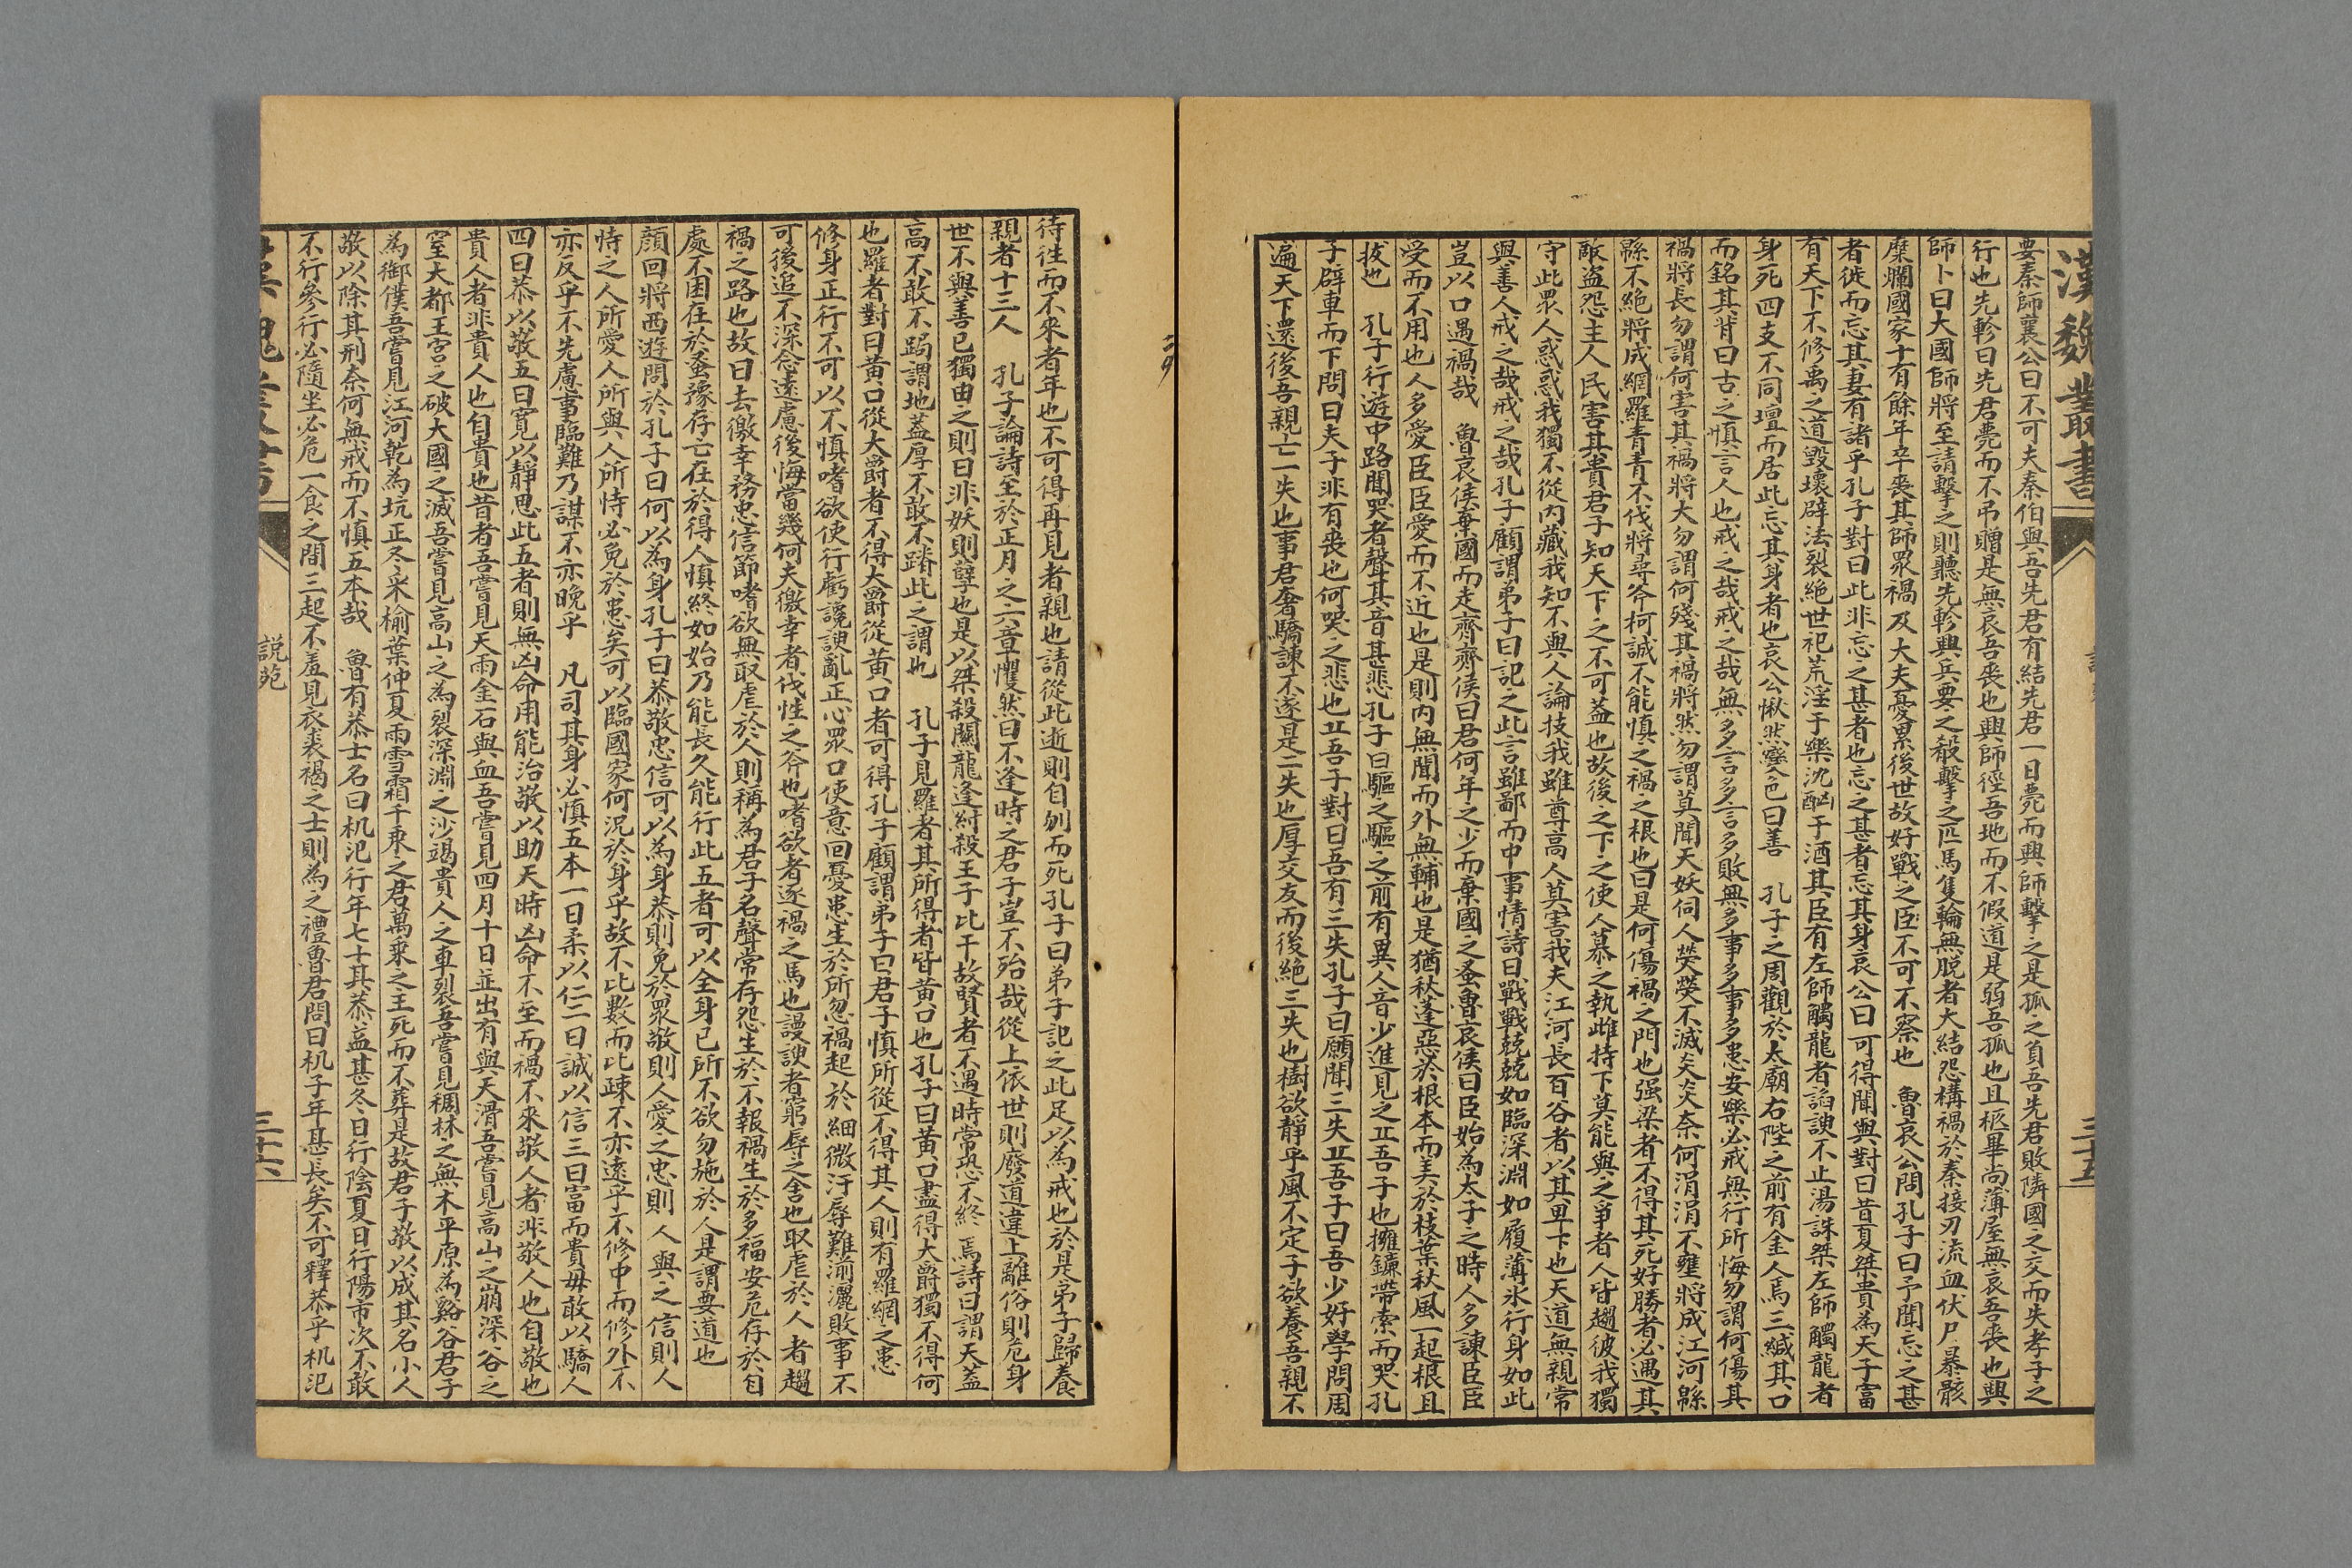 漢魏叢書
三十五
要秦師襄公曰不可夫秦伯與吾先君有結先君一日薨而興師擊之是孤之負吾先君敗隣國之交而失孝子之
行也先軫曰先君薨而不弔贈是無哀吾喪也興師徑吾地而不假道是弱吾孤也且柩畢尚薄屋無哀吾喪也興
師卜曰大國師將至請擊之則聽先軫興兵要之殽擊之匹馬隻輪無脫者大結怨構禍於秦接刃流血伏尸暴骸
糜爛國家十有餘年卒喪其師眾禍及大夫憂累後世故好戰之臣不可不察也　魯哀公問孔子曰予聞忘之甚
者徙而忘其妻有諸乎孔子對曰此非忘之甚者也忘之甚者忘其身哀公曰可得聞與對曰昔夏桀貴為天子富
有天下不修禹之道毀壞辟法裂絕世祀荒淫于樂沈酗于酒其臣有左師觸龍者諂諛不止湯誅桀左師觸龍者
身死四支不同壇而居此忘其身者也哀公愀然變色曰善　孔子之周觀於太廟右陛之前有金人焉三緘其口
而銘其背曰古之慎言人也戒之哉戒之哉無多言多言多敗無多事多事多患安樂必戒無行所悔勿謂何傷其
禍將長勿謂何害其禍將大勿謂何殘其禍將然勿謂莫聞天妖伺人熒熒不滅炎炎奈何涓涓不壅將成江河緜
緜不絕將成網羅青青不伐將尋斧柯誠不能慎之禍之根也曰是何傷禍之門也强梁者不得其死好勝者必遇其
敵盜怨主人民害其貴君子知天下之不可葢也故後之下之使人慕之執雌持下莫能與之爭者人皆趨彼我獨
守此眾人惑惑我獨不從內藏我知不與人論技我雖尊高人莫害我夫江河長百谷者以其卑下也天道無親常
與善人戒之哉戒之哉孔子顧謂弟子曰記之此言雖鄙而中事情詩曰戰戰兢兢如臨深淵如履薄氷行身如此
豈以口遇禍哉　魯哀侯棄國而走齊齊侯曰君何年之少而棄國之蚤魯哀侯曰臣始為太子之時人多諫臣臣
受而不用也人多愛臣臣愛而不近也是則內無聞而外無輔也是猶秋蓬惡於根本而美於枝葉秋風一起根且
拔也　孔子行遊中路聞哭者聲其音甚悲孔子曰驅之驅之前有異人音少進見之丠吾子也擁鐮帶索而哭孔
子辟車而下問曰夫子非有喪也何哭之悲也丠吾子對曰吾有三失孔子曰願聞三失丠吾子曰吾少好學問周
遍天下還後吾親亡一失也事君奢驕諫不遂是二失也厚交友而後絕三失也樹欲靜乎風不定子欲養吾親不
待往而不來者年也不可得再見者親也請從此逝則自刎而死孔子曰弟子記之此足以為戒也於是弟子歸養
親者十三人　孔子論詩至於正月之六章懼然曰不逢時之君子豈不殆哉從上依世則廢道違上離俗則危身
世不與善已獨由之則曰非妖則孽也是以桀殺關龍逢紂殺王子比干故賢者不遇時常恐不終焉詩曰謂天蓋
高不敢不跼謂地蓋厚不敢不蹐此之謂也　孔子見羅者其所得者皆黃口也孔子曰黃口盡得大爵獨不得何
也羅者對曰黃口從大爵者不得大爵從黃口者可得孔子顧謂弟子曰君子慎所從不得其人則有羅網之患
修身正行不可以不慎嗜欲使行虧讒諛亂正心眾口使意回憂患生於所忽禍起於細微汙辱難湔灑敗事不
可後追不深念遠慮後悔當幾何夫徼幸者伐性之斧也嗜欲者逐禍之馬也謾諛者窮辱之舍也取虐於人者趨
禍之路也故曰去徼幸務忠信節嗜欲無取虐於人則稱為君子名聲常存怨生於不報禍生於多福安危存於自
處不困在於蚤豫存亡在於得人慎終如始乃能長久能行此五者可以全身己所不欲勿施於人是謂要道也
顏回將西遊問於孔子曰何以為身孔子曰恭敬忠信可以為身恭則免於眾敬則人愛之忠則人與之信則人
恃之人所愛人所與人所恃必免於患矣可以臨國家何況於身乎故不比數而比疎不亦遠乎不修中而修外不
亦反乎不先慮事臨難乃謀不亦晚乎　凡司其身必慎五本一曰柔以仁二曰誠以信三曰富而貴毋敢以驕人
四曰恭以敬五曰寬以靜思此五者則無凶命用能治敬以助天時凶命不至而禍不來敬人者非敬人也自敬也
貴人者非貴人也自貴也昔者吾嘗見天雨金石與血吾嘗見四月十日並出有與天滑吾嘗見高山之崩深谷之
窒大都王宮之破大國之滅吾嘗見高山之為裂深淵之沙竭貴人之車裂吾嘗見稠林之無木平原為谿谷君子
為御僕吾嘗見江河乾為坑正冬采榆葉仲夏雨雪霜千乘之君萬乘之王死而不葬是故君子敬以成其名小人
敬以除其刑奈何無戒而不慎五本哉　魯有恭士名曰机氾行年七十其恭益甚冬日行陰夏日行陽市次不敢
不行參行必隨坐必危一食之間三起不羞見衣裘褐之士則為之禮魯君問曰机子年甚長矣不可釋恭乎机氾
漢魏叢書
説苑
三十六